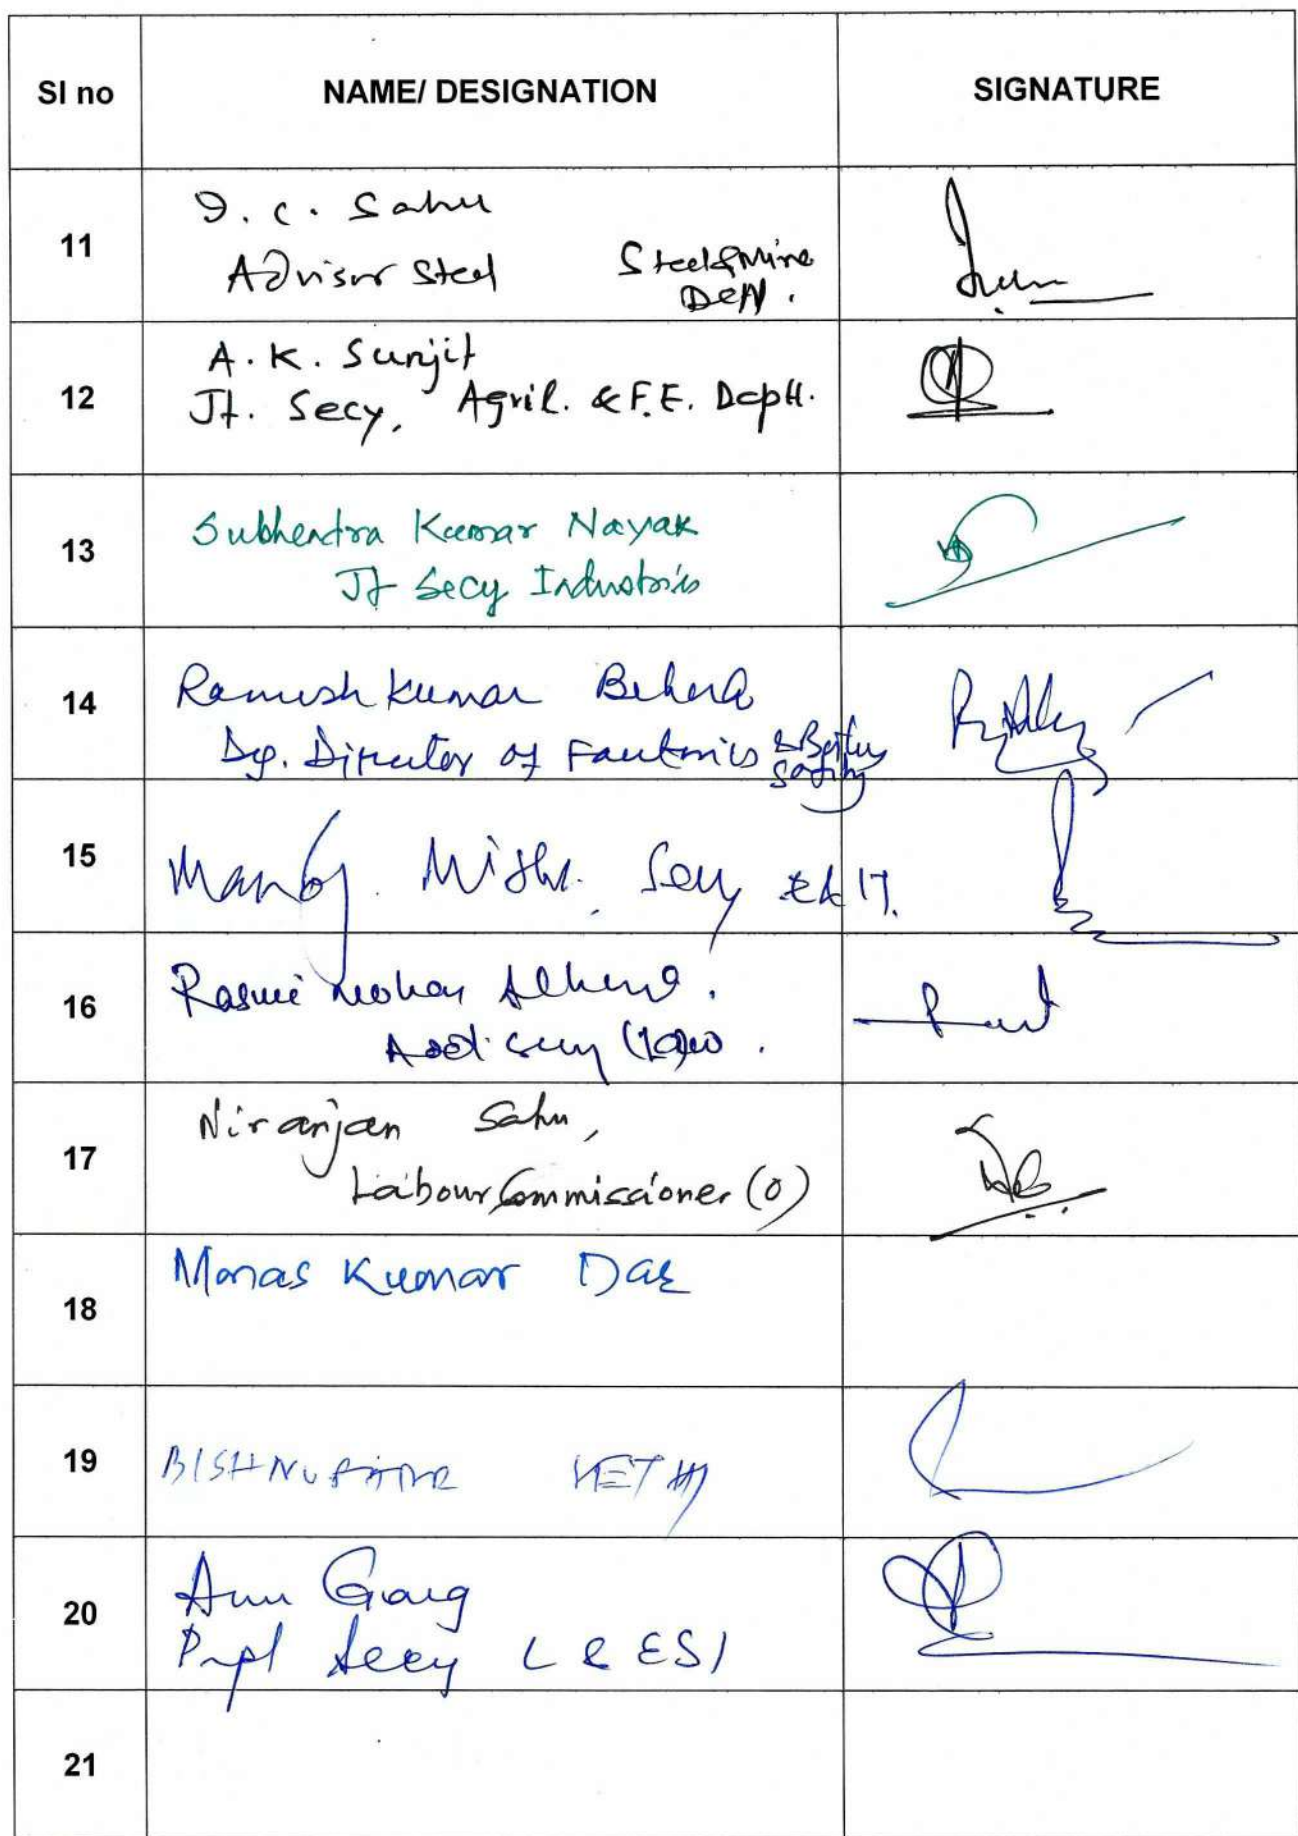 Sl no NAME/ DESIGNATION SIGNATURE
11 I. C. Sahu
Advisor Steel Steel & Mine
Dept.
12 A. K. Sunjit
Jt. Secy, Agril. & F.E. Deptt.
13 Subhendra Kumar Nayak
Jt Secy Industries
14 Ramesh Kumar Behera
Dy. Director of Factories & Boilers
Safety
15 Manoj Mishr. Secy E & IT.
16 Rasmi Mohan
Addl. Secy (Law
17 Niranjan Sahu,
Labour Commissioner (O)
18 Manas Kumar Das
19 BISHNUPADA SETHI
20 Anu Garg
Prpl Secy L & ESI
21